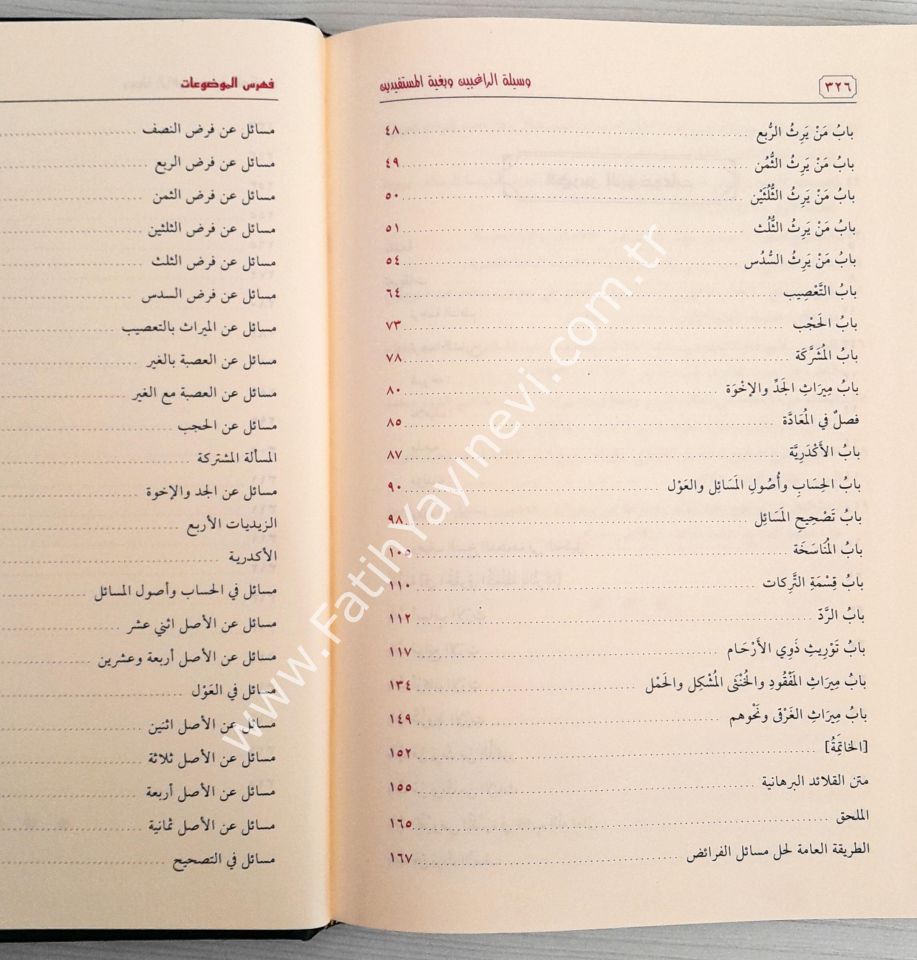 ٣٢٦ وسيلة الراغبين وبغية المستفيدين
بابُ مَنْ يَرِثُ الرُّبع ٤٨
بابُ مَنْ يَرِثُ الثُّمُن ٤٩
بابُ مَنْ يَرِثُ الثُّلُثَيْن ٥٠
بابُ مَنْ يَرِثُ الثُّلُث ٥١
بابُ مَنْ يَرِثُ السُّدُس ٥٤
بابُ التَّعْصِيب ٦٤
بابُ الحَجْب ٧٣
بابُ المُشَرَّكَة ٧٨
بابُ مِيرَاثِ الجَدِّ والإخْوَة ٨٠
فصلٌ في المُعَادَّة ٨٥
بابُ الأَكْدَرِيَّة ٨٧
بابُ الحِسَابِ وأُصُولِ المَسَائِل والعَوْل ٩٠
بابُ تَصْحِيحِ المَسَائِل ٩٨
بابُ المُنَاسَخَة ١٠٥
بابُ قِسْمَةِ التَّرِكات ١١٠
بابُ الرَّدّ ١١٢
بابُ تَوْرِيثِ ذَوِي الأَرْحَام ١١٧
بابُ مِيرَاثِ المَفْقُودِ والخُنْثَى المُشْكِل والحَمْل ١٣٤
بابُ مِيرَاثِ الغَرْقى ونَحْوهم ١٤٩
[الخاتِمَةُ] ١٥٢
متن القلائد البرهانية ١٥٥
الملحق ١٦٥
الطريقة العامة لحل مسائل الفرائض ١٦٧
فهرس الموضوعات
مسائل عن فرض النصف
مسائل عن فرض الربع
مسائل عن فرض الثمن
مسائل عن فرض الثلثين
مسائل عن فرض الثلث
مسائل عن فرض السدس
مسائل عن الميراث بالتعصيب
مسائل عن العصبة بالغير
مسائل عن العصبة مع الغير
مسائل عن الحجب
المسألة المشتركة
مسائل عن الجد والإخوة
الزيديات الأربع
الأكدرية
مسائل في الحساب وأصول المسائل
مسائل عن الأصل اثني عشر
مسائل عن الأصل أربعة وعشرين
مسائل في العَوْل
مسائل عن الأصل اثنين
مسائل عن الأصل ثلاثة
مسائل عن الأصل أربعة
مسائل عن الأصل ثمانية
مسائل في التصحيح
www.FatihYayinevi.com.tr